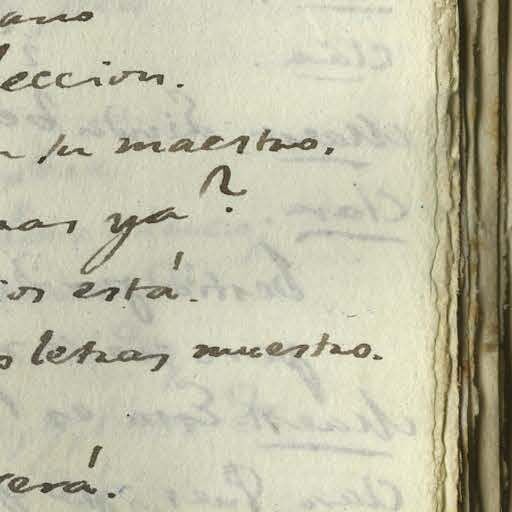 ano
leccion.
n su maestro.
nas ya?
ios está.
s letras muestro.
verá.